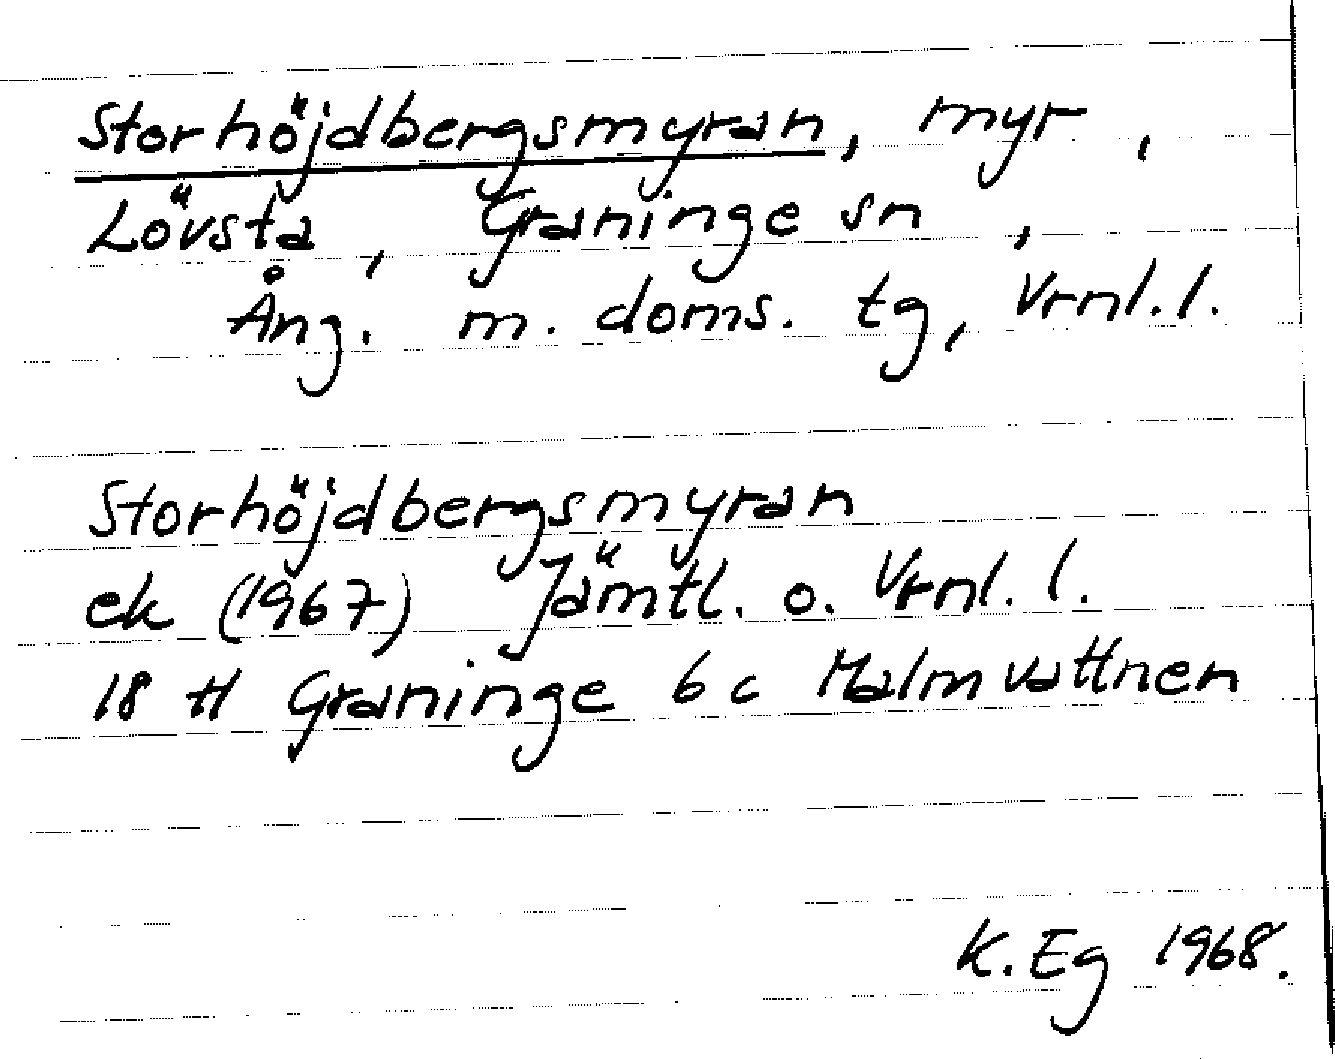 Storhöjdbergsmyran, myr ,
Lövsta , Graninge sn ,
Ång. m. doms. tg, Vrnl. l.
Storhöjdbergsmyran
ek (1967) Jämtl. o. Vrnl. l.
18 H Graninge 6 c Malmvattnen
K. Eg 1968.